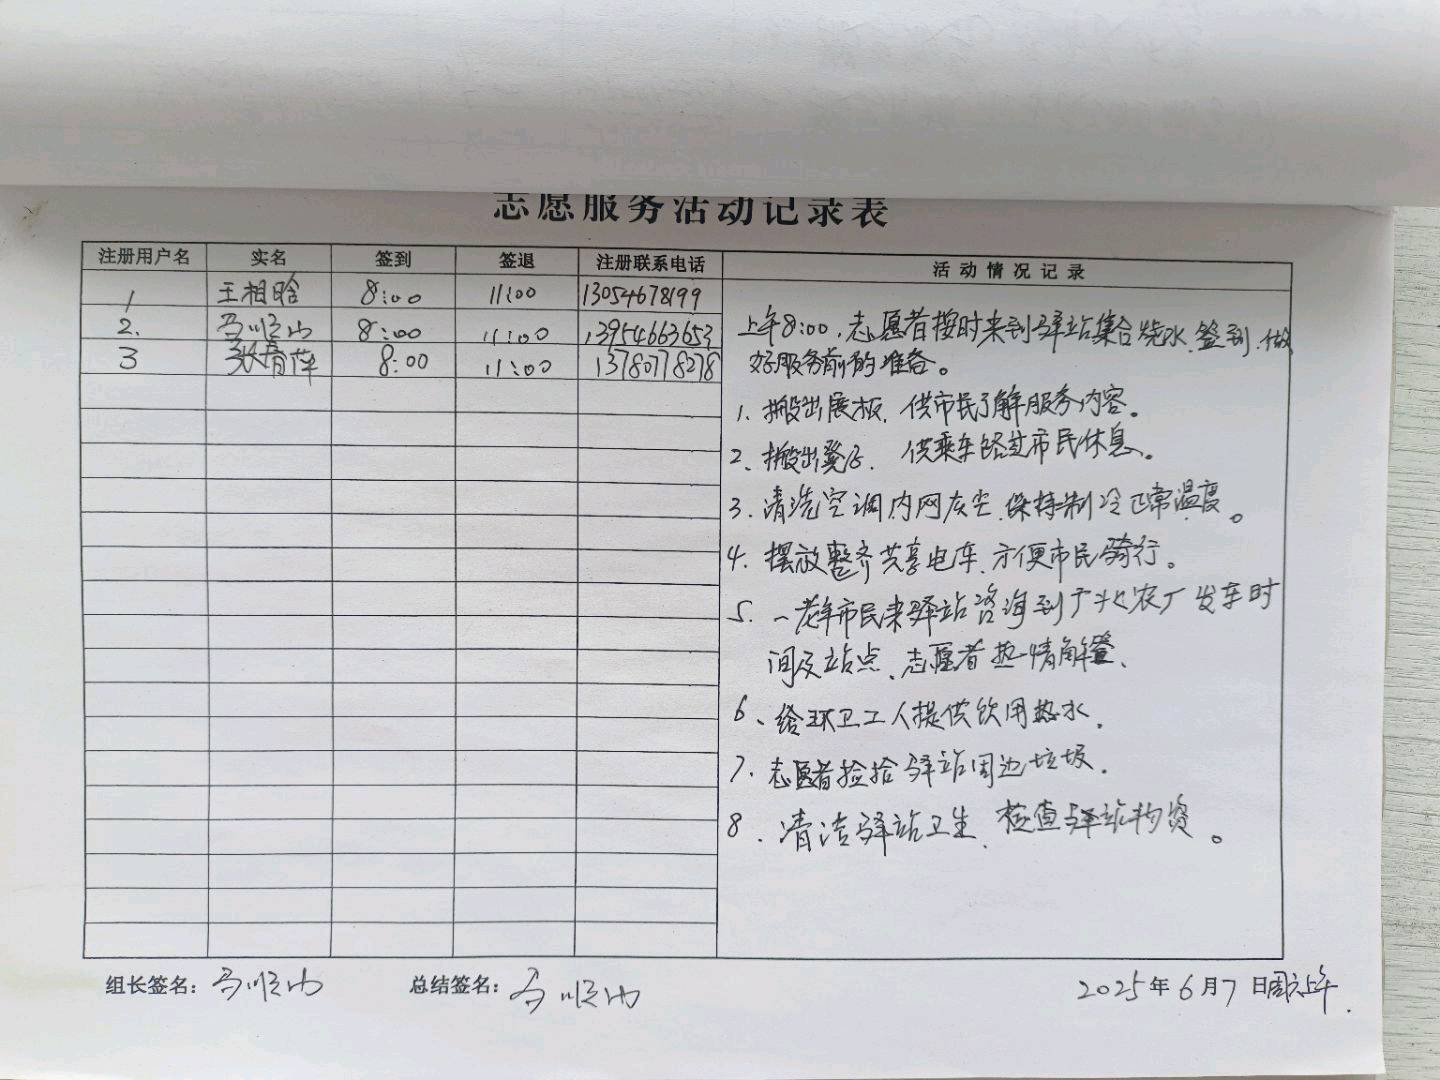 志愿服务活动记录表
注册用户名 实名 签到 签退 注册联系电话 活动情况记录
1 王相晗 8:00 11:00 13054678199
2. 马顺山 8:00 11:00 13954663653
3 张青萍 8:00 11:00 13780778278
上午8:00,志愿者按时来到驿站集合烧水、签到、做
好服务前的准备。
1、搬出展板,供市民了解服务内容。
2、搬出凳子、供乘车路过市民休息。
3、清洗空调内网灰尘,保持制冷正常温度。
4、摆放整齐共享电车、方便市民骑行。
5、一老年市民来驿站咨询到广北农厂发车时
间及站点、志愿者热情解答、
6、给环卫工人提供饮用热水、
7、志愿者捡拾驿站周边垃圾、
8、清洁驿站卫生、检查驿站物资。
组长签名:马顺山 总结签名:马顺山 2025年6月7日周六上午.